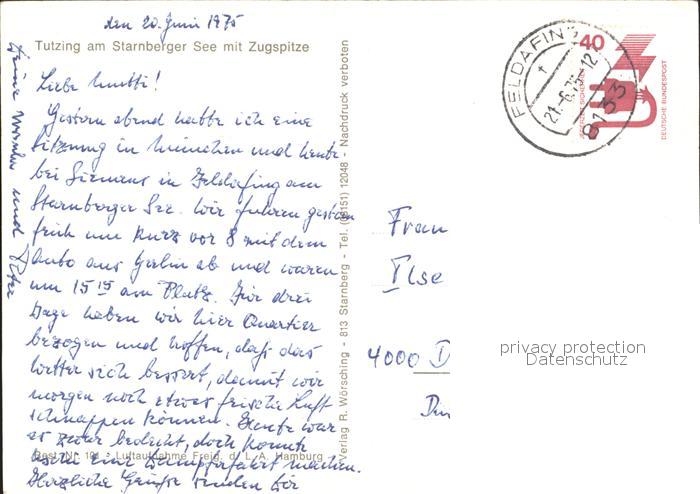 den 20. Juni 1975
Tutzing am Starnberger See mit Zugspitze
Liebe Mutti!
Gestern abend hatte ich eine
Sitzung in München und heute
bei Siemens in Feldafing am
Starnberger See. Wir fuhren gestern
früh um kurz vor 8 mit dem
Auto aus Berlin ab und waren
um 15 15 am Platz. Für drei
Tage haben wir hier Quartier
bezogen und hoffen, daß das
Wetter sich bessert, damit wir
morgen noch etwas frische Luft
schnappen können. Heute war
es zwar bedeckt, doch konnte
man eine Dampferfahrt machen.
Herzliche Grüße senden Dir
Deine und Peter
Best. Nr. 101 - Luftaufnahme Freig. d. L. A. Hamburg
Verlag R. Wörsching - 813 Starnberg - Tel. (08151) 12048 - Nachdruck verboten
FELDAFING
21.-6.75-12
8133
40
DEUTSCHE BUNDESPOST
Frau
Ilse
4000 D
privacy protection
Datenschutz